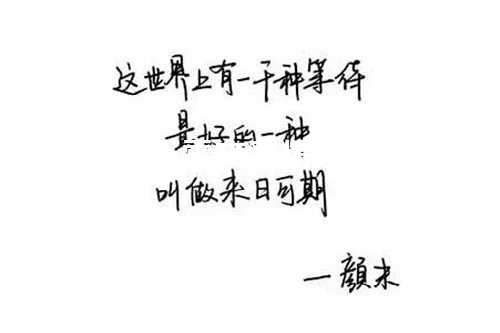 这世界上有一千种等待
最好的一种
叫做来日可期
一颜末